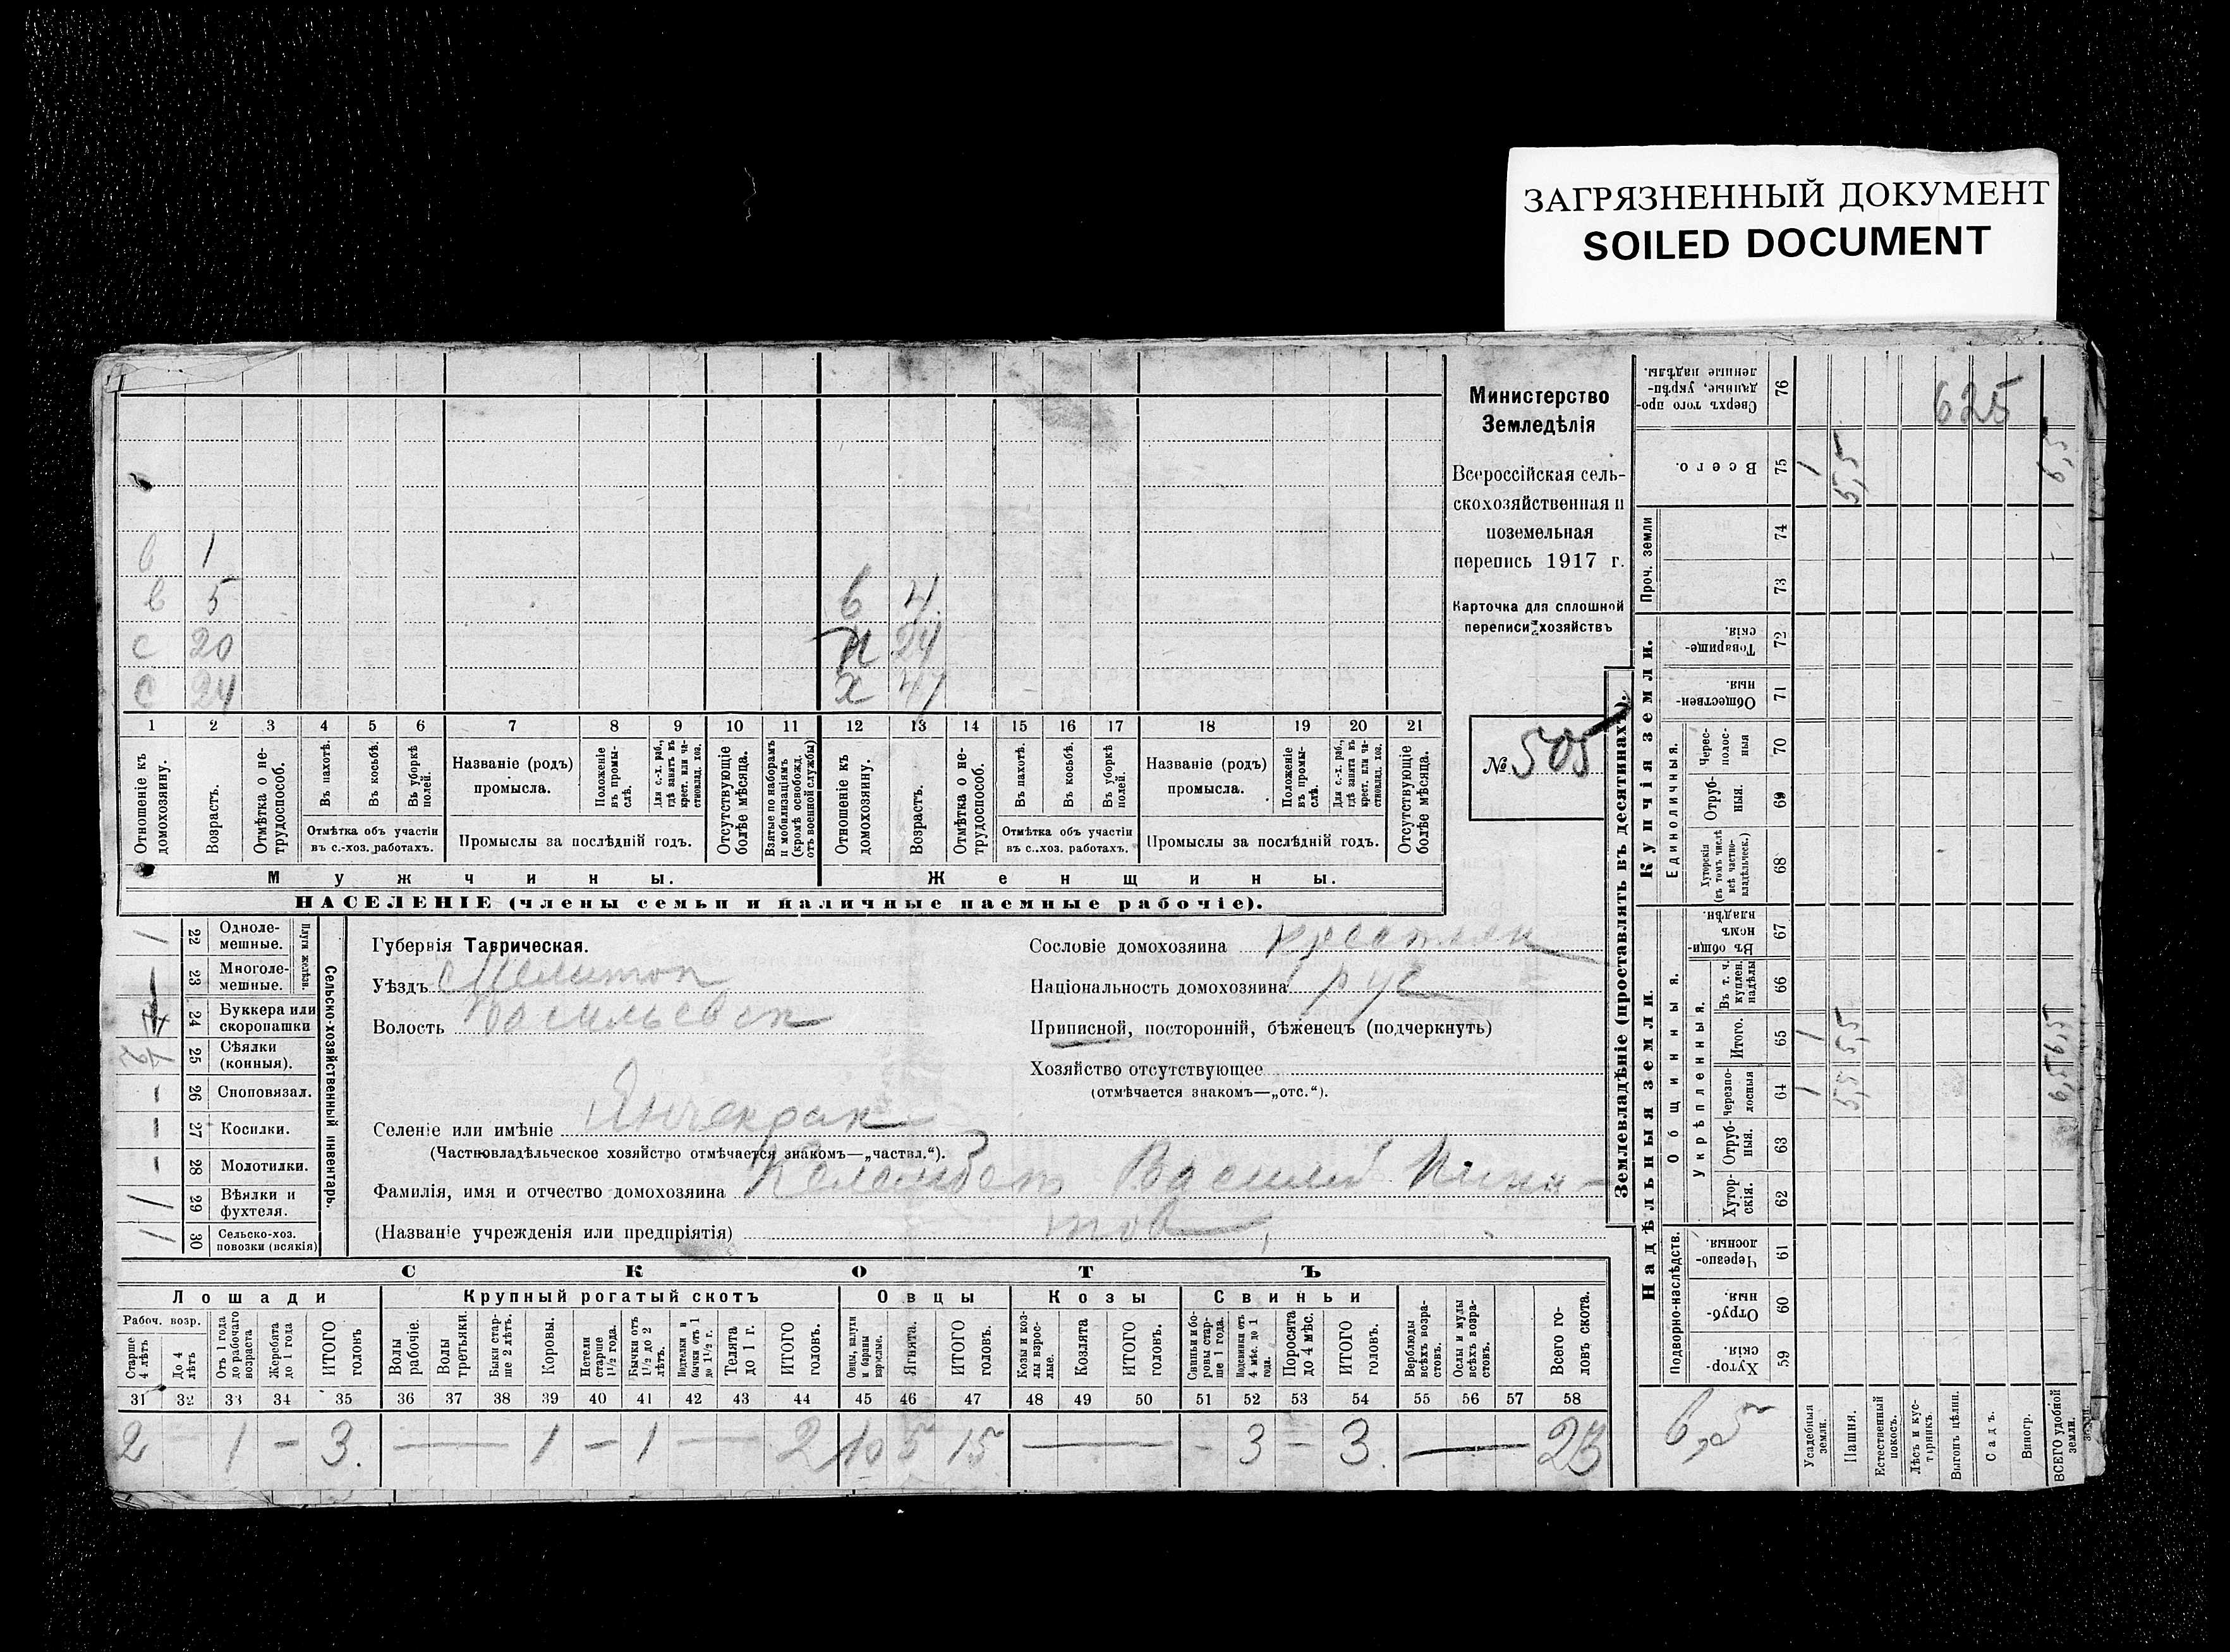 ЗАГРЯЗНЕННЫЙ ДОКУМЕНТ
SOILED DOCUMENT
Министерство
Земледѣлія
Всероссійская сель-
скохозяйственная и
поземельная
перепись 1917 г.
Карточка для сплошной
переписи хозяйствъ
№ 505
в 1
в 5 в 4
с 20 24
с 24 х 41
1 2 3 4 5 6 7 8 9 10 11 12 13 14 15 16 17 18 19 20 21
Отношеніе къ домохозяину.
Возрастъ.
Отмѣтка о не-трудоспособ.
Въ пахотѣ.
Въ косьбѣ.
Въ уборкѣ полей.
Отмѣтка объ участіи
въ с.-хоз. работахъ.
Названіе (родъ)
промысла.
Положеніе въ промы-слѣ.
Для с.-х. раб., гдѣ занятъ въ крест. или ча-стновлад. хоз.
Промыслы за послѣдній годъ.
Отсутствующіе болѣе мѣсяца.
Взятые по наборамъ и мобилизаціямъ (кромѣ освобожд. отъ военной службы)
Отношеніе къ домохозяину.
Возрастъ.
Отмѣтка о не-трудоспособ.
Въ пахотѣ.
Въ косьбѣ.
Въ уборкѣ полей.
Отмѣтка объ участіи
въ с.-хоз. работахъ.
Названіе (родъ)
промысла.
Положеніе въ промы-слѣ.
Для с.-х. раб., гдѣ занята въ крест. или ча-стновлад. хоз.
Промыслы за послѣдній годъ.
Отсутствующіе болѣе мѣсяца.
Мужчины. Женщины.
НАСЕЛЕНІЕ (члены семьи и наличные наемные рабочіе).
Сельско-хозяйственный инвентарь.
Плуги желѣз.
22 Одноле-мешные.
23 Многоле-мешные.
24 Буккера или скоропашки
25 Сѣялки (конныя).
26 Сноповязал.
27 Косилки.
28 Молотилки.
29 Вѣялки и фухтеля.
30 Сельско-хоз. повозки (всякія)
Губернія Таврическая.
Уѣздъ Мелитоп
Волость Васильевск
Селеніе или имѣніе Янчекрак
(Частновладѣльческое хозяйство отмѣчается знакомъ—„частвл.“).
Фамилія, имя и отчество домохозяина Келембет Василий Ники-
(Названіе учрежденія или предпріятія) тов
Сословіе домохозяина крестьян
Національность домохозяина рус
Приписной, посторонній, бѣженецъ (подчеркнуть)
Хозяйство отсутствующее
(отмѣчается знакомъ—„отс.“).
СКОТЪ
Лошади Крупный рогатый скотъ Овцы Козы Свиньи
Рабоч. возр.
Старше 4 лѣтъ
До 4 лѣтъ
Отъ 1 года до рабочаго возраста
Жеребята до 1 года
ИТОГО головъ
Волы рабочіе.
Волы третьяки.
Быки стар-ше 2 лѣтъ.
Коровы.
Нетели старше 1½ года.
Бычки отъ 1½ до 2 лѣтъ.
Подтелки и бычки отъ 1 до 1½ г.
Телята до 1 г.
ИТОГО головъ.
Овцы, валухи и бараны взрослые.
Ягнята.
ИТОГО головъ.
Козы и коз-лы взрос-лые.
Козлята
ИТОГО головъ.
Свиньи и бо-ровы стар-ше 1 года.
Подсвинки отъ 4 мѣс. до 1 года.
Поросята до 4 мѣс.
ИТОГО головъ.
Верблюды всѣхъ возра-стовъ.
Ослы и мулы всѣхъ возра-стовъ.
Всего го-ловъ скота.
31 32 33 34 35 36 37 38 39 40 41 42 43 44 45 46 47 48 49 50 51 52 53 54 55 56 57 58
2 – 1 – 3. — 1 – 1 — 2 10 5 15 — – 3 – 3 — 23
Землевладѣніе (проставлять въ десятинахъ).
Купчія земли.
Надѣльныя земли.
Сверхъ того про-данные, укрѣп-ленные надѣлы. 76
Всего. 75
Проч. земли
74
73
Товарище-скія. 72
Обществен-ныя. 71
Единоличныя.
Черес-полос-ныя 70
Отруб-ныя. 69
Хуторскія (въ томъ числѣ всѣ частно-владѣльческ.) 68
Общинныя.
Въ общин-номъ владѣн. 67
Укрѣпленныя.
Въ т. ч. куплен. надѣлы 66
Итого. 65
Черезпо-лосныя 64
Отруб-ныя. 63
Хутор-скія. 62
Подворно-наслѣдств.
Черезпо-лосныя 61
Отруб-ныя. 60
Хутор-скія. 59
Усадебныя земли.
Пашня.
Естественный покосъ.
Лѣсъ и кус-тарникъ.
Выгонъ цѣлин.
Садъ.
Виногр.
ВСЕГО удобной земли.
625
1
5,5
6,5
1 1
5,5 5,5
6,5 6,5
6,5